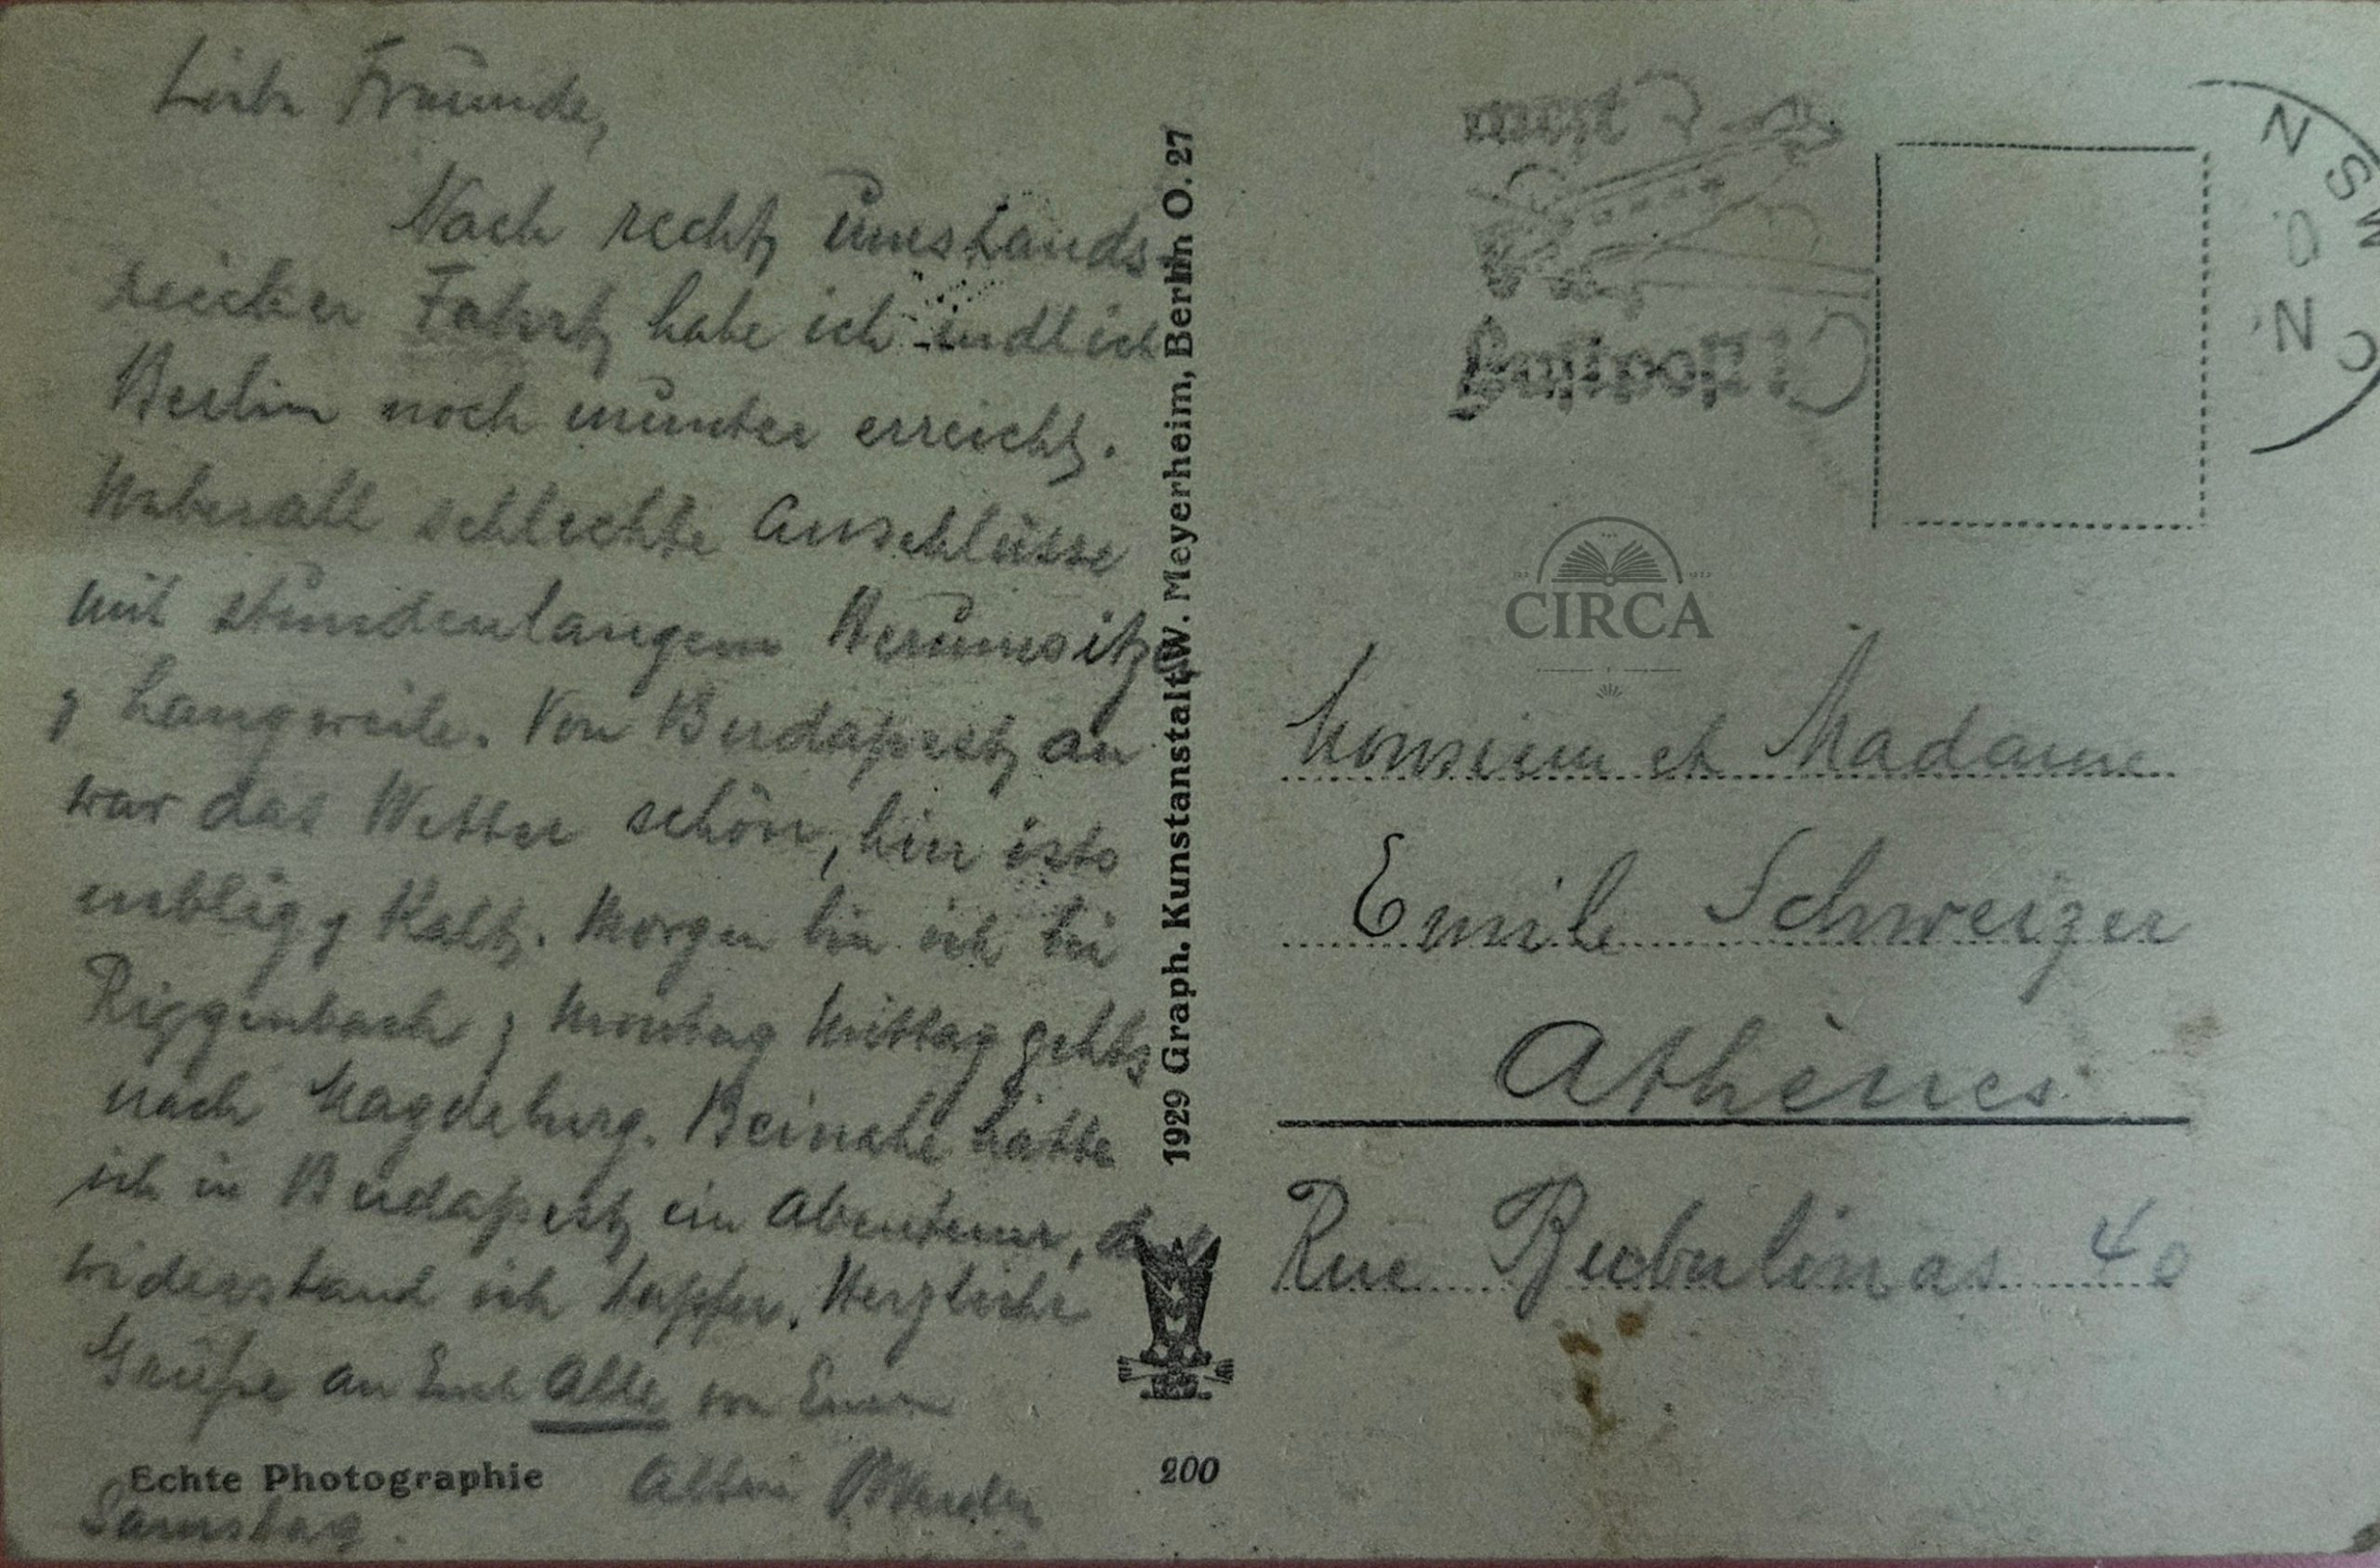 Liebe Freunde,
Nach recht umstands-
reicher Fahrt habe ich endlich
Berlin noch munter erreicht.
Ueberall schlechte Anschlüsse
mit stundenlangem Herumsitzen
Langweile. Von Budapest an
war das Wetter schön, hier ists
neblig, kalt. Morgen bin ich bei
Riggenbach, Montag Mittag gehts
nach Magdeburg. Beinahe hätte
ich in Budapest ein Abenteuer,
widerstand ich tapfer. Herzliche
Grüße an Euch Alle von Eurem
Echte Photographie
Samstag.
1929 Graph. Kunstanstalt W. Meyerheim, Berlin O. 27
200
Luftpost
N SW
CIRCA
Monsieur et Madame
Emile Schweizer
Athènes
Rue Bubulinas 40